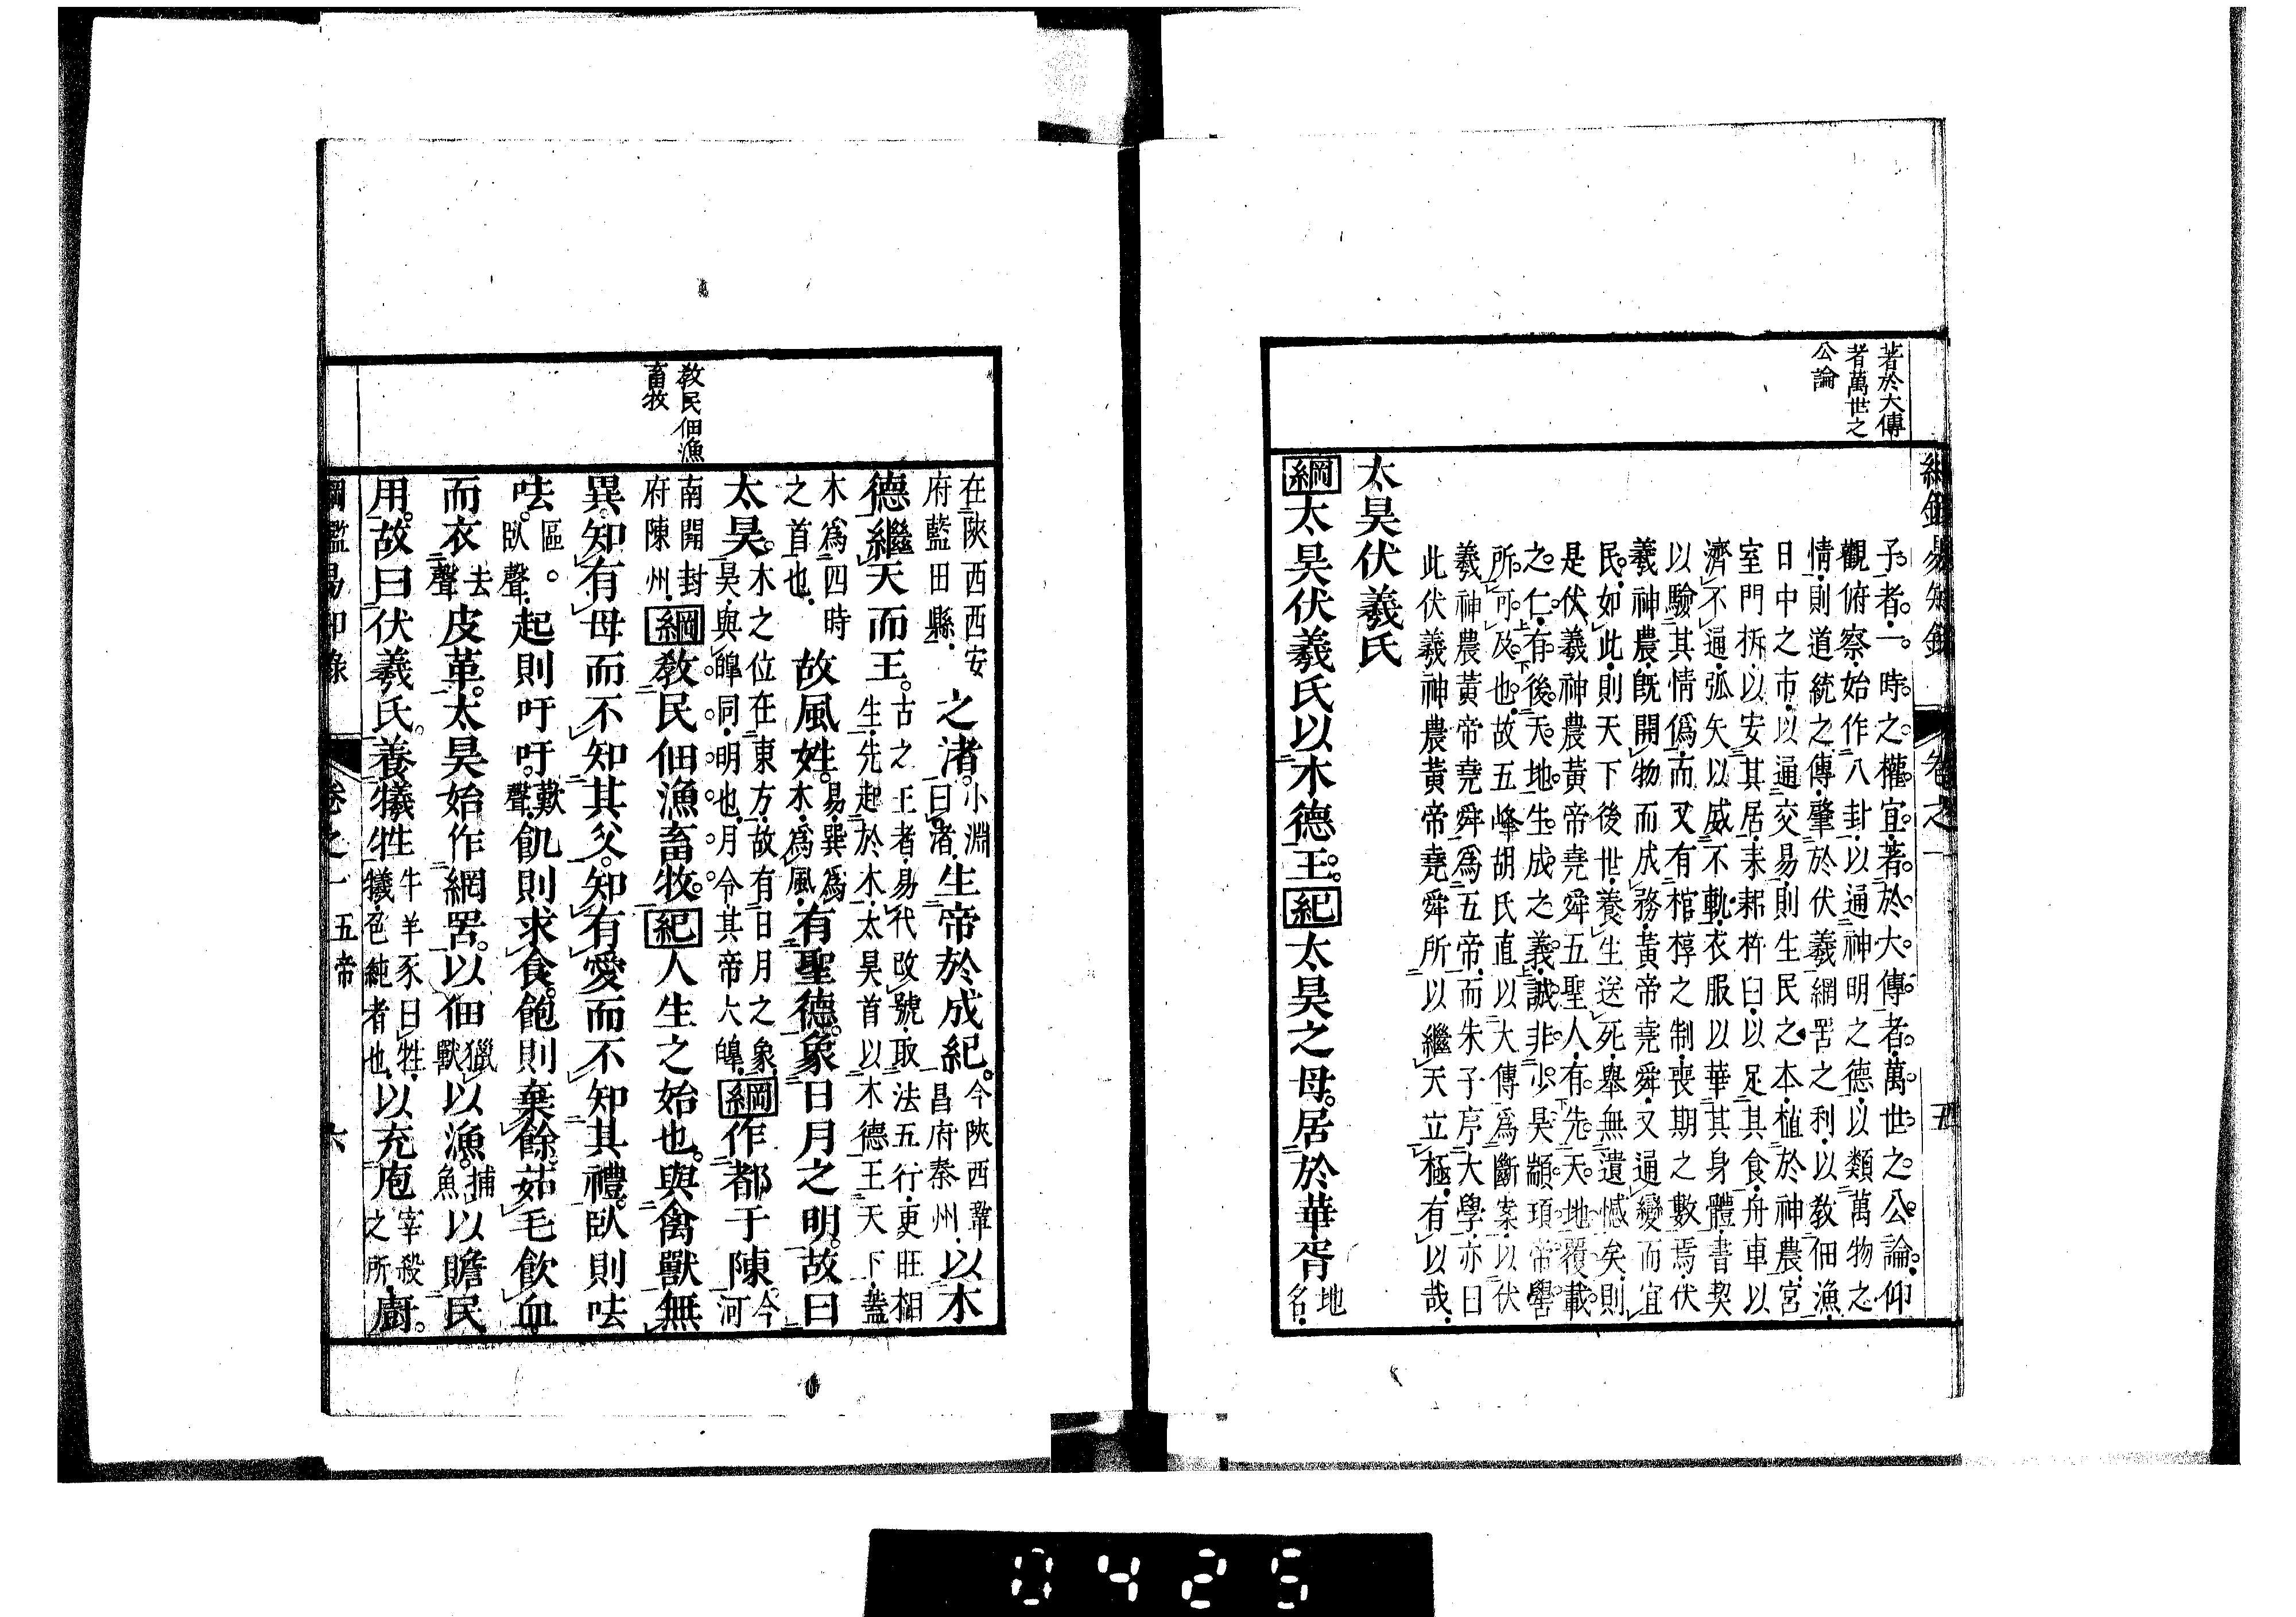 著於大傳
者萬世之
公論
綱鑑易知錄 卷之一 五
子者一時之權宜著於大傳者萬世之公論仰
觀俯察始作八卦以通神明之德以類萬物之
情則道統之傳肇於伏羲網罟之利以教佃漁
日中之市以通交易則生民之本植於神農宮
室門柝以安其居耒耜杵臼以足其食舟車以
濟不通弧矢以威不軌衣服以華其身體書契
以驗其情僞而又有棺椁之制喪期之數焉伏
羲神農既開物而成務黃帝堯舜又通變而宜
民如此則天下後世養生送死舉無遺憾矣則
是伏羲神農黃帝堯舜五聖人有先天地覆載
之仁有後天地生成之義誠非少昊顓頊帝嚳
所可及也故五峰胡氏直以大傳爲斷案以伏
羲神農黃帝堯舜爲五帝而朱子序大學亦曰
此伏羲神農黃帝堯舜所以繼天立極有以哉
太昊伏羲氏
綱太昊伏羲氏以木德王紀太昊之母居於華胥地名
教民佃漁
畜牧
在陝西西安府藍田縣之渚小淵曰渚生帝於成紀今陝西鞏昌府秦州以木
德繼天而王古之王者易代改號取法五行更旺相生先起於木太昊首以木德王天下蓋
木爲四時之首也故風姓易巽爲木爲風有聖德象日月之明故曰
太昊木之位在東方故有日月之象昊與皥同明也月令其帝大皥綱作都于陳今河
南開封府陳州綱教民佃漁畜牧紀人生之始也與禽獸無
異知有母而不知其父知有愛而不知其禮臥則呿
呿區臥聲起則吁吁歎聲飢則求食飽則棄餘茹毛飲血
而衣去聲皮革太昊始作網罟以佃獵獸以漁捕魚以贍民
用故曰伏羲氏養犧牲牛羊豕曰牲犧色純者也以充庖宰殺之所廚
綱鑑易知錄 卷之一 五帝 六
0425